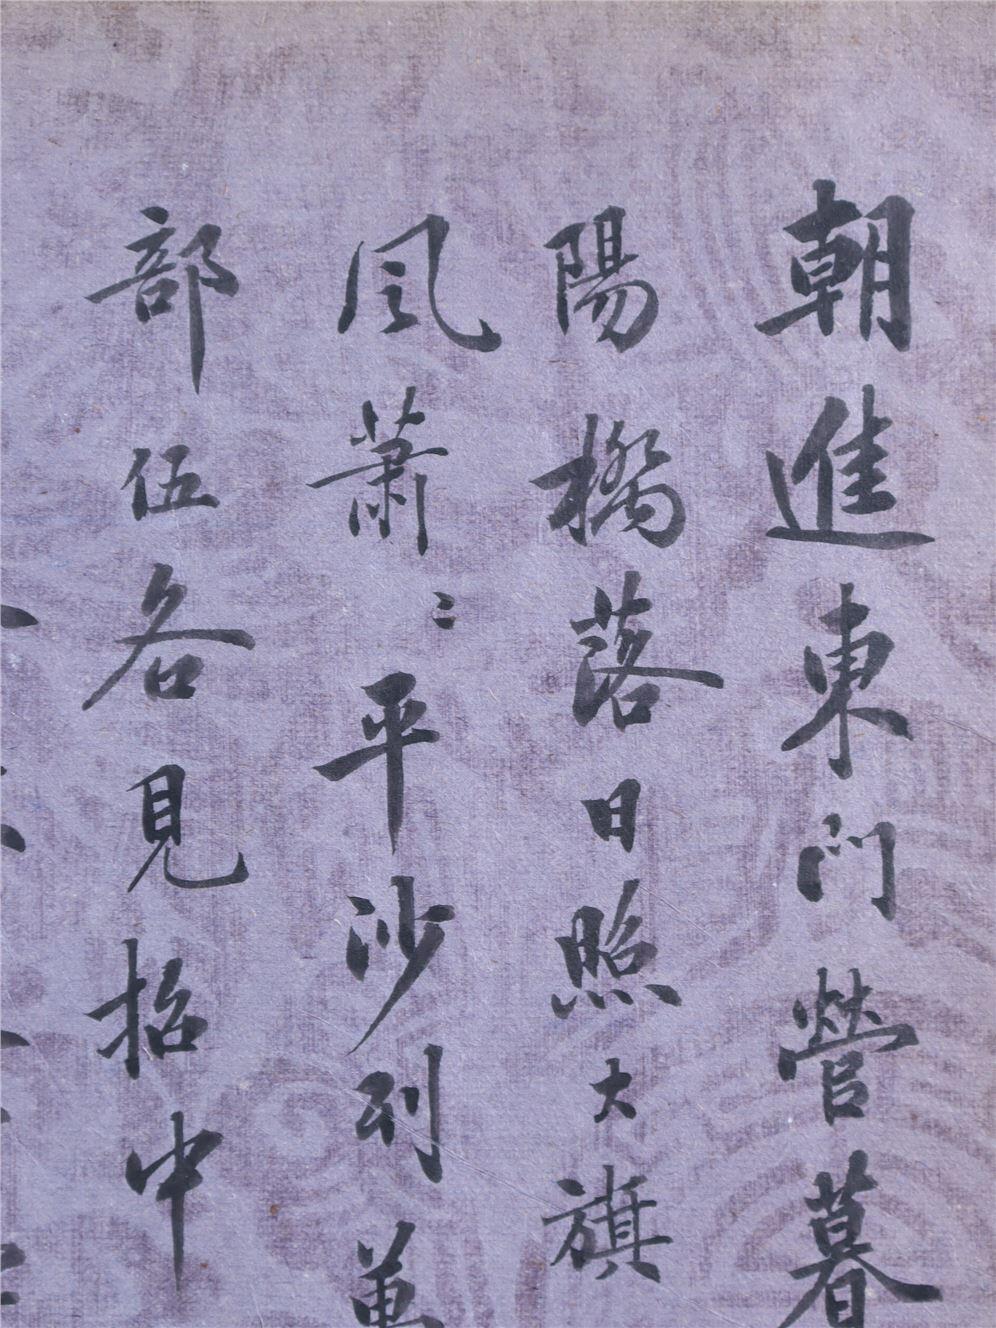 朝進東門營暮
陽橋落日照大旗
風蕭〻平沙列萬
部伍各見招中